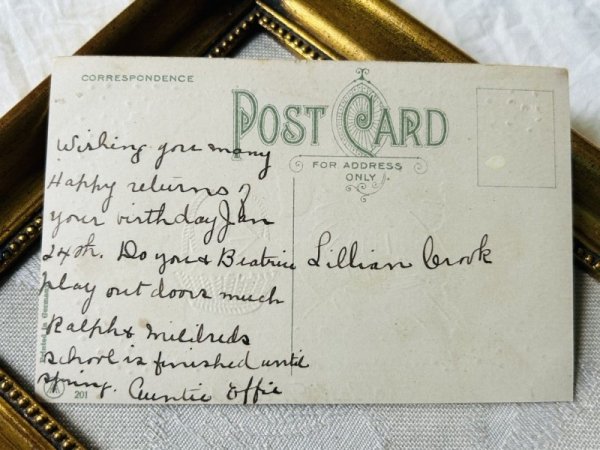 CORRESPONDENCE
POST CARD
FOR ADDRESS
ONLY.
Wishing you many
Happy returns of
your birthday Jan
24th. Do you & Beatrice
play out doors much
Ralph & Mildreds
school is finished until
spring. Auntie Effie
Lillian Crook
Printed in Germany
201